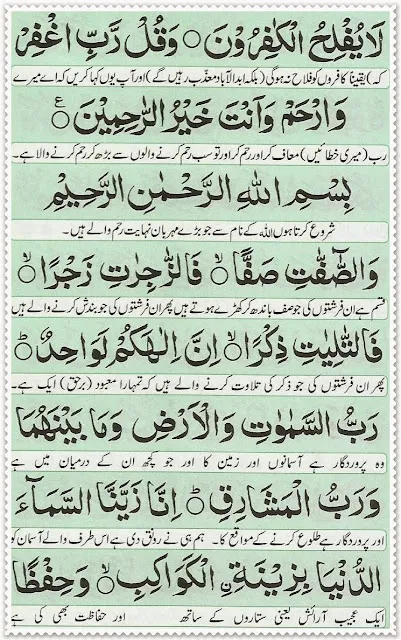 لَا يُفْلِحُ الْكٰفِرُوْنَ ۝ وَقُلْ رَّبِّ اغْفِرْ
کہ) یقیناً کافروں کو فلاح نہ ہوگی (بلکہ ابدالآباد معذب رہیں گے) اور آپ یوں کہا کریں کہ اے میرے
وَارْحَمْ وَاَنْتَ خَيْرُ الرّٰحِمِيْنَ ۝ ع
رب (میری خطائیں) معاف کر اور رحم کر اور تو سب رحم کرنے والوں سے بڑھ کر رحم کرنے والا ہے۔
بِسْمِ اللّٰهِ الرَّحْمٰنِ الرَّحِيْمِ
شروع کرتا ہوں اللہ کے نام سے جو بڑے مہربان نہایت رحم والے ہیں۔
وَالصّٰٓفّٰتِ صَفًّا ۝ۙ فَالزّٰجِرٰتِ زَجْرًا ۝ۙ
قسم ہے ان فرشتوں کی جو صف باندھ کر کھڑے ہوتے ہیں پھر ان فرشتوں کی جو بندش کرنے والے ہیں
فَالتّٰلِيٰتِ ذِكْرًا ۝ۙ اِنَّ اِلٰهَكُمْ لَوَاحِدٌ ۝ؕ
پھر ان فرشتوں کی جو ذکر کی تلاوت کرنے والے ہیں کہ تمہارا معبود (برحق) ایک ہے۔
رَبُّ السَّمٰوٰتِ وَالْاَرْضِ وَمَا بَيْنَهُمَا
وہ پروردگار ہے آسمانوں اور زمین کا اور جو کچھ ان کے درمیان میں ہے
وَرَبُّ الْمَشَارِقِ ۝ؕ اِنَّا زَيَّنَّا السَّمَآءَ
اور پروردگار ہے طلوع کرنے کے مواقع کا۔ ہم ہی نے رونق دی ہے اس طرف والے آسمان کو
الدُّنْيَا بِزِيْنَةِ ۨالْكَوَاكِبِ ۝ۙ وَحِفْظًا
ایک عجیب آرائش یعنی ستاروں کے ساتھ اور حفاظت بھی کی ہے